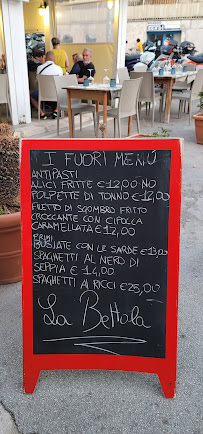 I FUORI MENÚ
ANTIPASTI
ALICI FRITTE €12,00 NO
POLPETTE DI TONNO €12,00
FILETTO DI SGOMBRO FRITTO
CROCCANTE CON CIPOLLA
CARAMELLATA €12,00
PRIMI
BUSIATE CON LE SARDE €13,00
SPAGHETTI AL NERO DI
SEPPIA € 14,00
SPAGHETTI AI RICCI €25,00
La Bettola